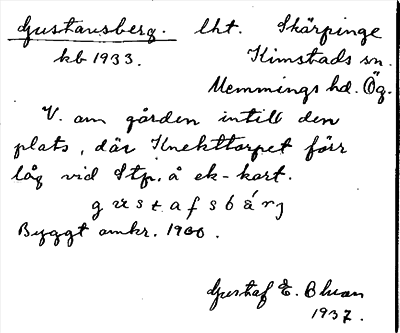 Gustavsberg. lht. Skärpinge
kb 1933. Kimstads sn.
Memmings hd. Ög.
V. om gården intill den
plats, där Knekttorpet förr
låg vid Stp. å ek-kart.
gustafsbárj
Byggt omkr. 1900.
Gustaf E. Bluan
1937.